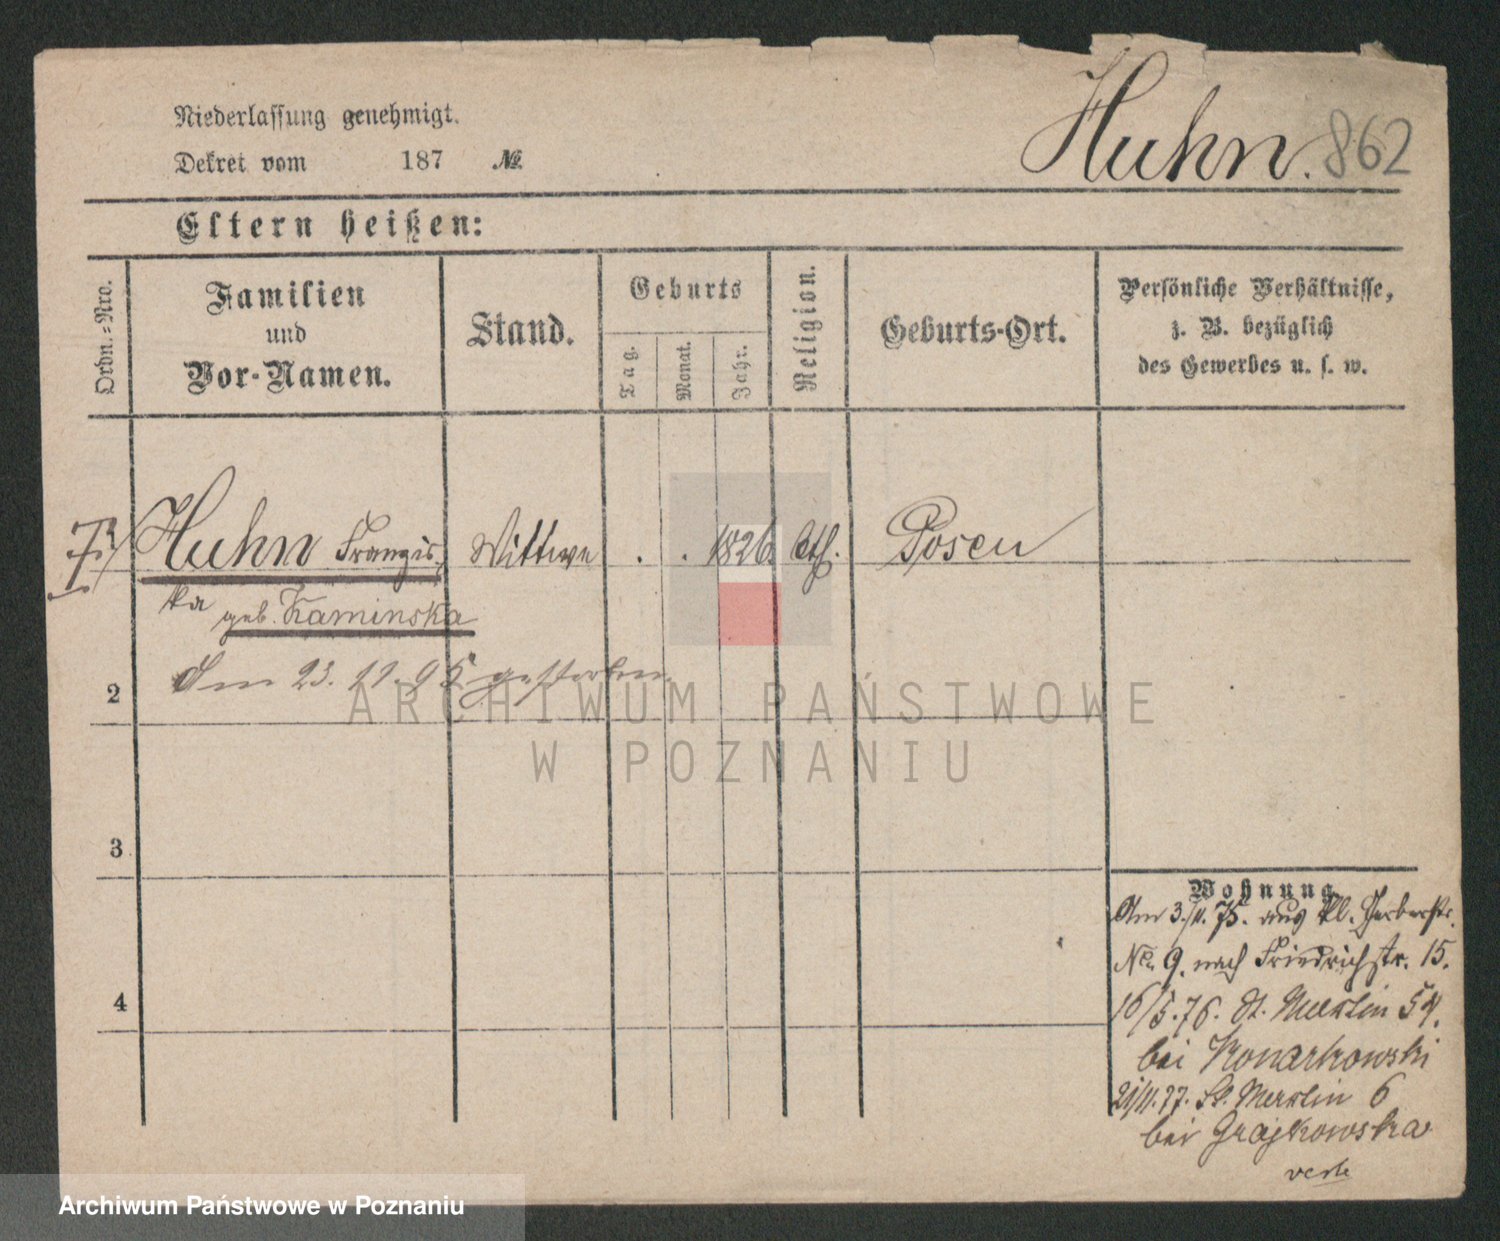 Niederlassung genehmigt.
Dekret vom 187 №
Huhn. 862
Eltern heißen:
Ordn.-Nro.
Familien
und
Vor-Namen.
Stand.
Geburts
Tag.
Monat.
Jahr.
Religion.
Geburts-Ort.
Persönliche Verhältnisse,
z. B. bezüglich
des Gewerbes u. s. w.
Huhn Franzis, Wittwe . . 1826. Cth. Posen
ka geb. Kaminska
2 Am 23. 11. 95 gestorben.
ARCHIWUM PAŃSTWOWE
W POZNANIU
3
4
Wohnung
Am 3./11. 75. aus kl. Gerberstr.
No. 9. nach Friedrichstr. 15.
16/5. 76. St. Martin 54.
bei Konarkowski
21/11. 77. St. Martin 6
bei Grajkowska
verte
Archiwum Państwowe w Poznaniu